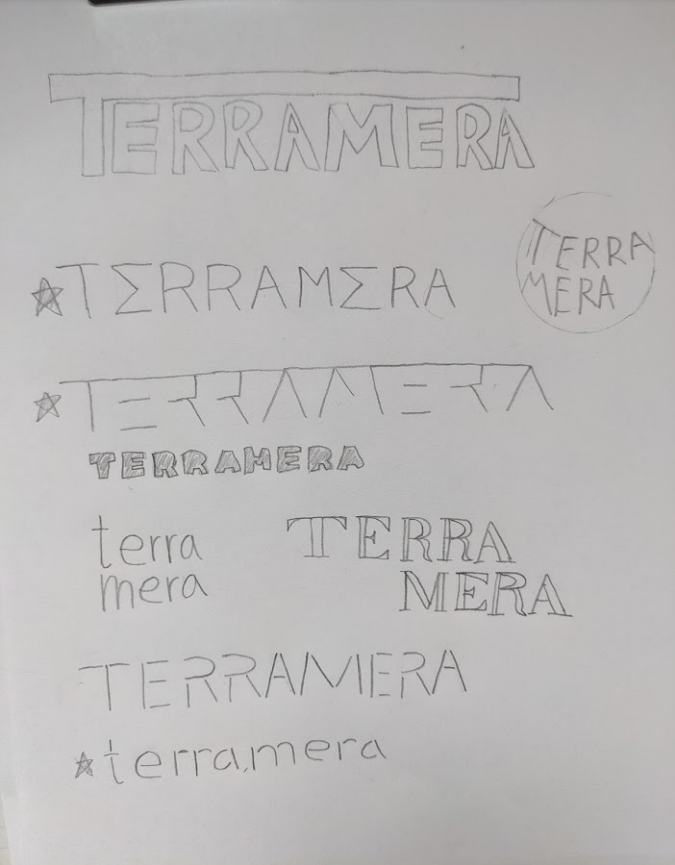 TERRAMERA
TERRA
MERA
TΣRRAMΣRA
TERRAMERA
TERRAMERA
terra
mera
TERRA
MERA
TERRAMERA
terra.mera